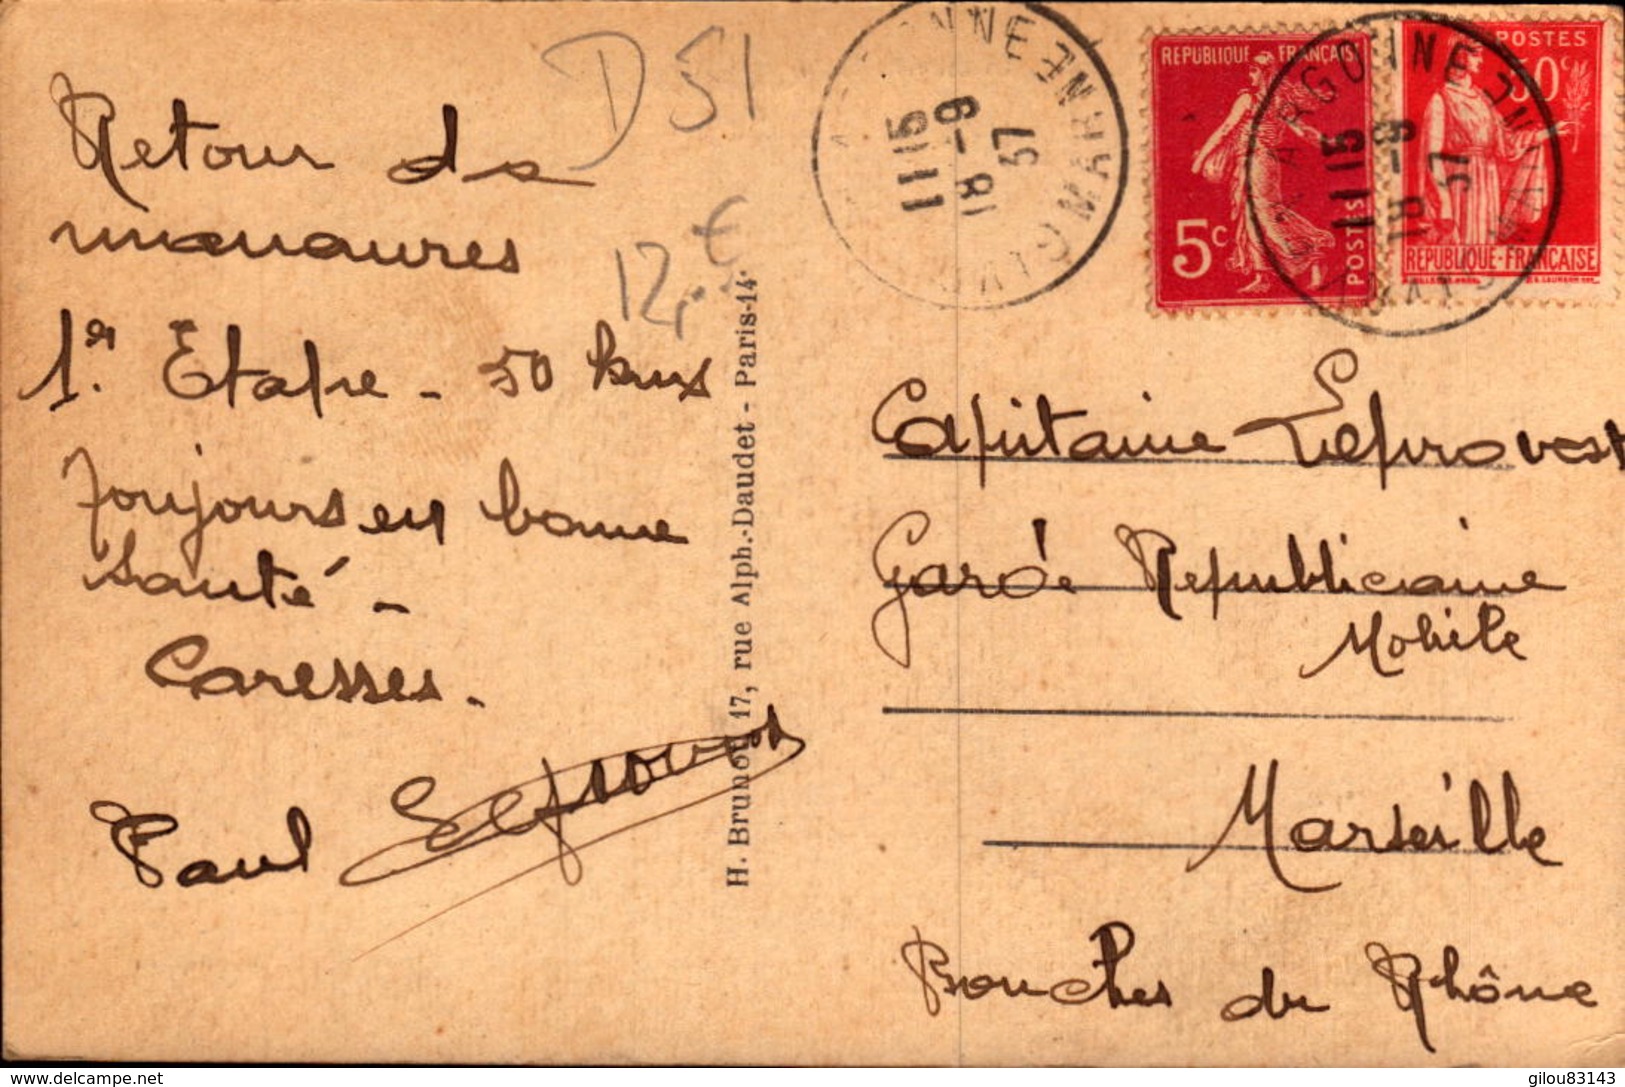 Retour de
manœuvres
1er Etape - 50 kms
Toujours en bonne
santé -
Caresses.
Paul Leprovost
D 51
12,- €
H. Brunot, 17, rue Alph.-Daudet - Paris-14e
ARGONNE
MARNE
11 15
18 -9
37
RÉPUBLIQUE FRANÇAISE
5c
POSTES
POSTES
50c
REPUBLIQUE-FRANÇAISE
ARGONNE
11 15
18 -9
37
Capitaine Leprovost
Garde Republicaine
Mobile
Marseille
Bouches du Rhône
www.delcampe.net
gilou83143